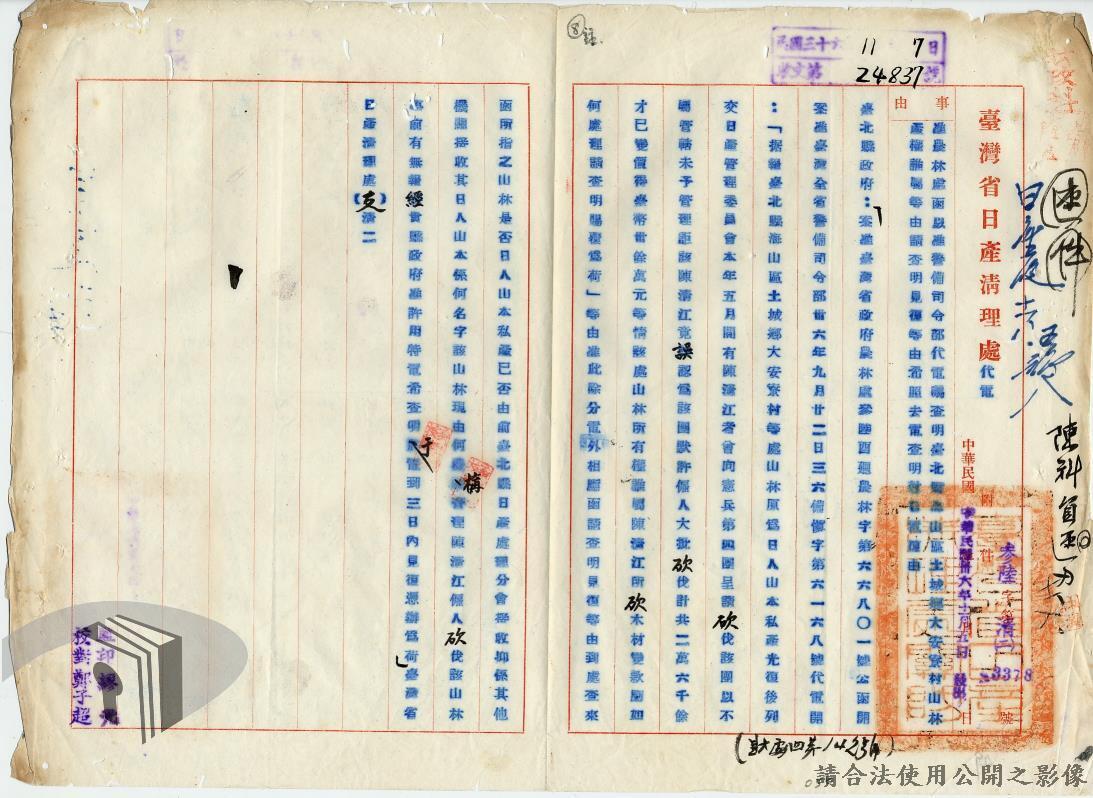 民國三十六 11 7日
收文第 24837號
臺灣省日產清理處代電
速件
事由
准農林處函以准警備司令部代電囑查明臺北縣海山區土城鄉大安寮村山林
產權誰屬等由請查明見復等由希照去電查明
中華民國卅六年十一月五日發出
附件
參陸 字第 清二 33378 號
臺北縣政府:案准臺灣省政府農林處參陸酉迴農林字第六六八〇一號公函開
案准臺灣全省警備司令部卅六年九月廿二日三六備慎字第六一六八號代電開
:「据報臺北縣海山區土城鄉大安寮村等處山林原為日人山本私產光復後列
交日產管理委員會本年五月間有陳清江者曾向憲兵第四團呈請砍伐該團以不
屬管轄未予管理詎該陳清江竟誤認為該團默許僱人大批砍伐計共二萬六千餘
才已變價得臺幣百餘萬元等情該處山林所有權誰屬陳清江所砍木材變款應如
何處理請查明賜復為荷」等由准此除分電外相應函請查明見復等由到處查來
函所指之山林是否日人山本私產已否由前臺北縣日產處理分會接收抑係其他
機關接收其日人山本係何名字該山林現由何機構管理陳清江僱人砍伐該山林
事前有無報經貴縣政府准許用特電希查明于電到三日內見復憑辦為荷臺灣省
日產清理處(支)清二
校對鄭子超
(財產四第1425號)
請合法使用公開之影像